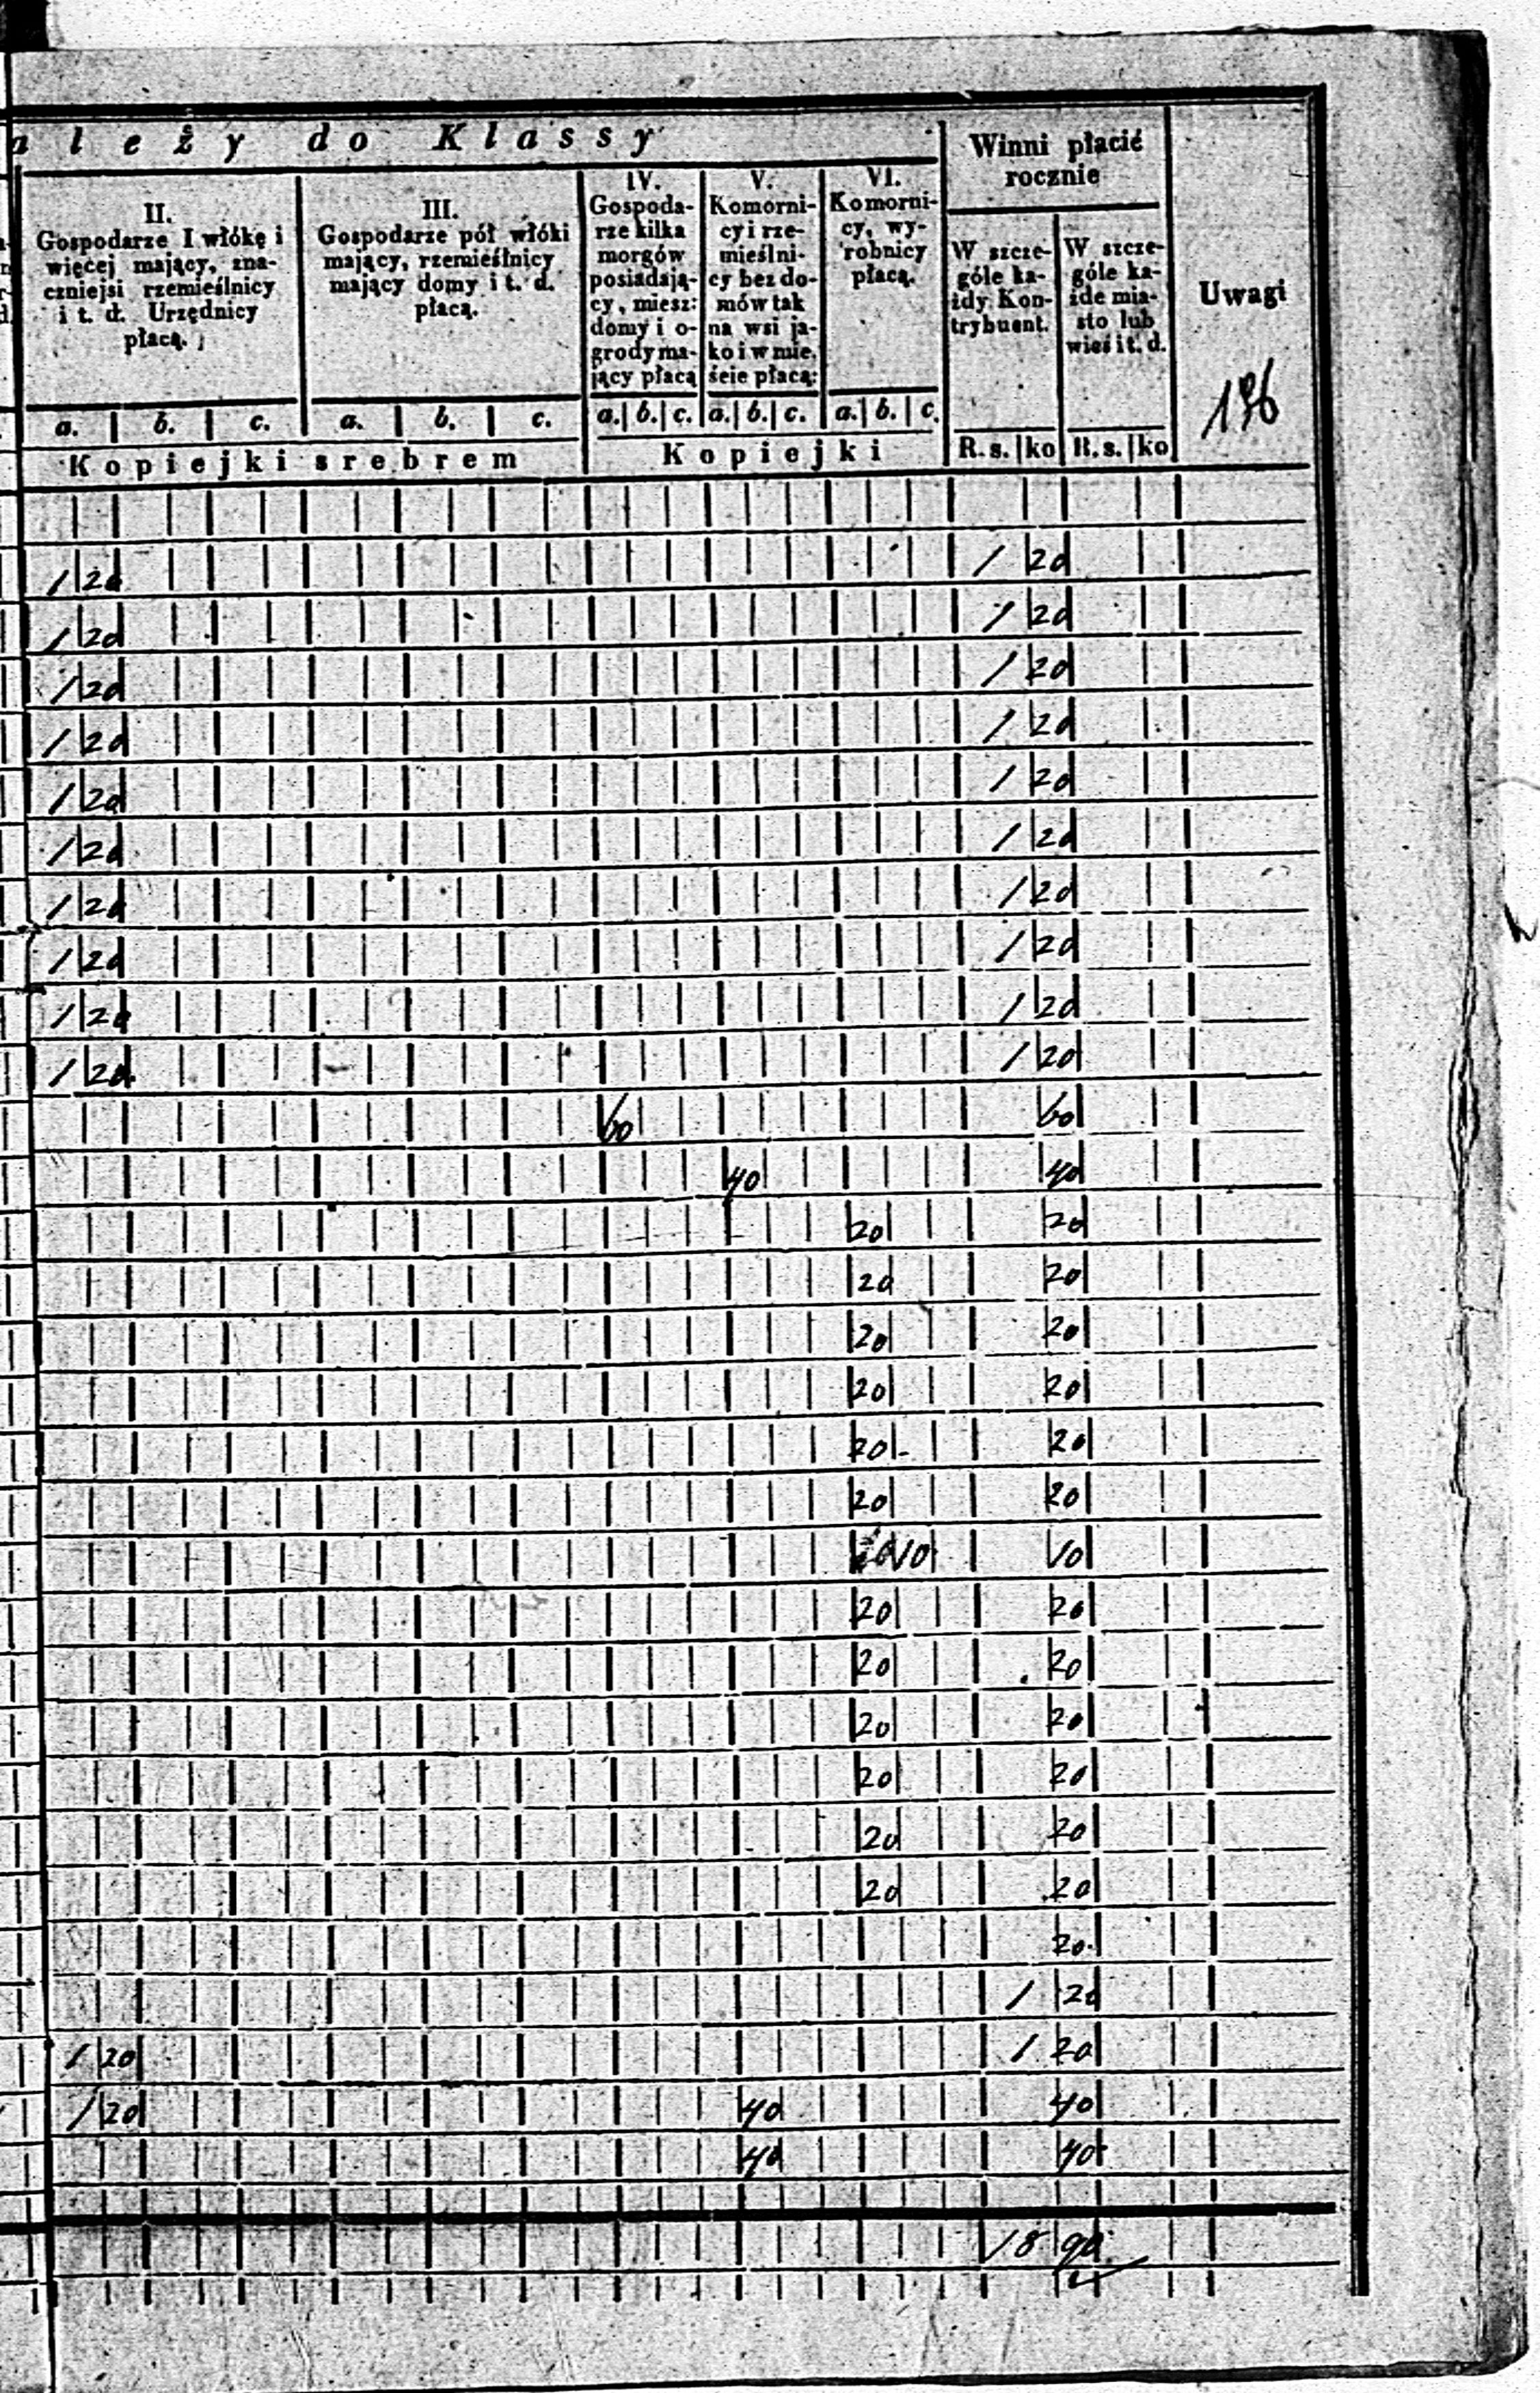 ależy do Klassy
Winni płacić
rocznie
Uwagi
196
II.
Gospodarze I włókę i
więcej mający, zna-
czniejsi rzemieślnicy
i t. d. Urzędnicy
płacą.
III.
Gospodarze pół włóki
mający, rzemieślnicy
mający domy i t. d.
płacą.
IV.
Gospoda-
rze kilka
morgów
posiadają-
cy, miesz:
domy i o-
grody ma-
jący płacą
V.
Komorni-
cy i rze-
mieślni-
cy bez do-
mów tak
na wsi ja-
ko i w mie,
ście płacą:
VI.
Komorni-
cy, wy-
robnicy
płacą.
W szcze-
góle ka-
żdy Kon-
trybuent.
W szcze-
góle ka-
żde mia-
sto lub
wieś i t. d.
a. b. c. a. b. c. a. b. c. a. b. c. a. b. c.
Kopiejki srebrem Kopiejki R. s. ko R. s. ko
1 20 1 20
1 20 1 20
1 20 1 20
1 20 1 20
1 20 1 20
1 20 1 20
1 20 1 20
1 20 1 20
1 20 1 20
1 20 1 20
60 60
40 40
20 20
20 20
20 20
20 20
20 20
20 20
10 10
20 20
20 20
20 20
20 20
20 20
20 20
20
1 20
1 20 1 20
1 20 40 40
40 40
18 90